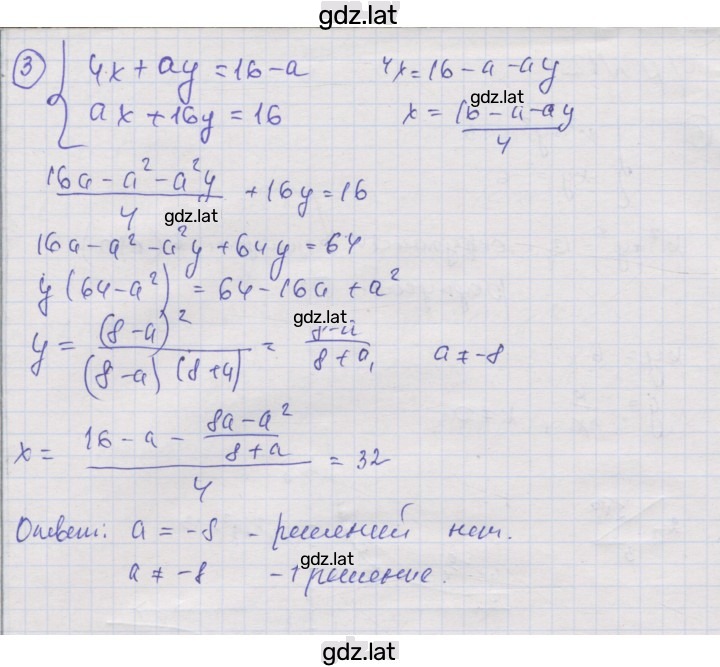 gdz.lat
3 { 4x + ay = 16 - a   4x = 16 - a - ay
ax + 16y = 16   x = (16 - a - ay)/4
gdz.lat
(16a - a² - a²y)/4 + 16y = 16
gdz.lat
16a - a² - a²y + 64y = 64
y (64 - a²) = 64 - 16a + a²
gdz.lat gdz.lat
y = (8 - a)²/((8 - a) (8 + a)) = (8 - a)/(8 + a), a ≠ -8
x = (16 - a - (8a - a²)/(8 + a))/4 = 32
gdz.lat
Ответ: a = -8 - решений нет.
gdz.lat
a ≠ -8 - 1 решение.
gdz.lat